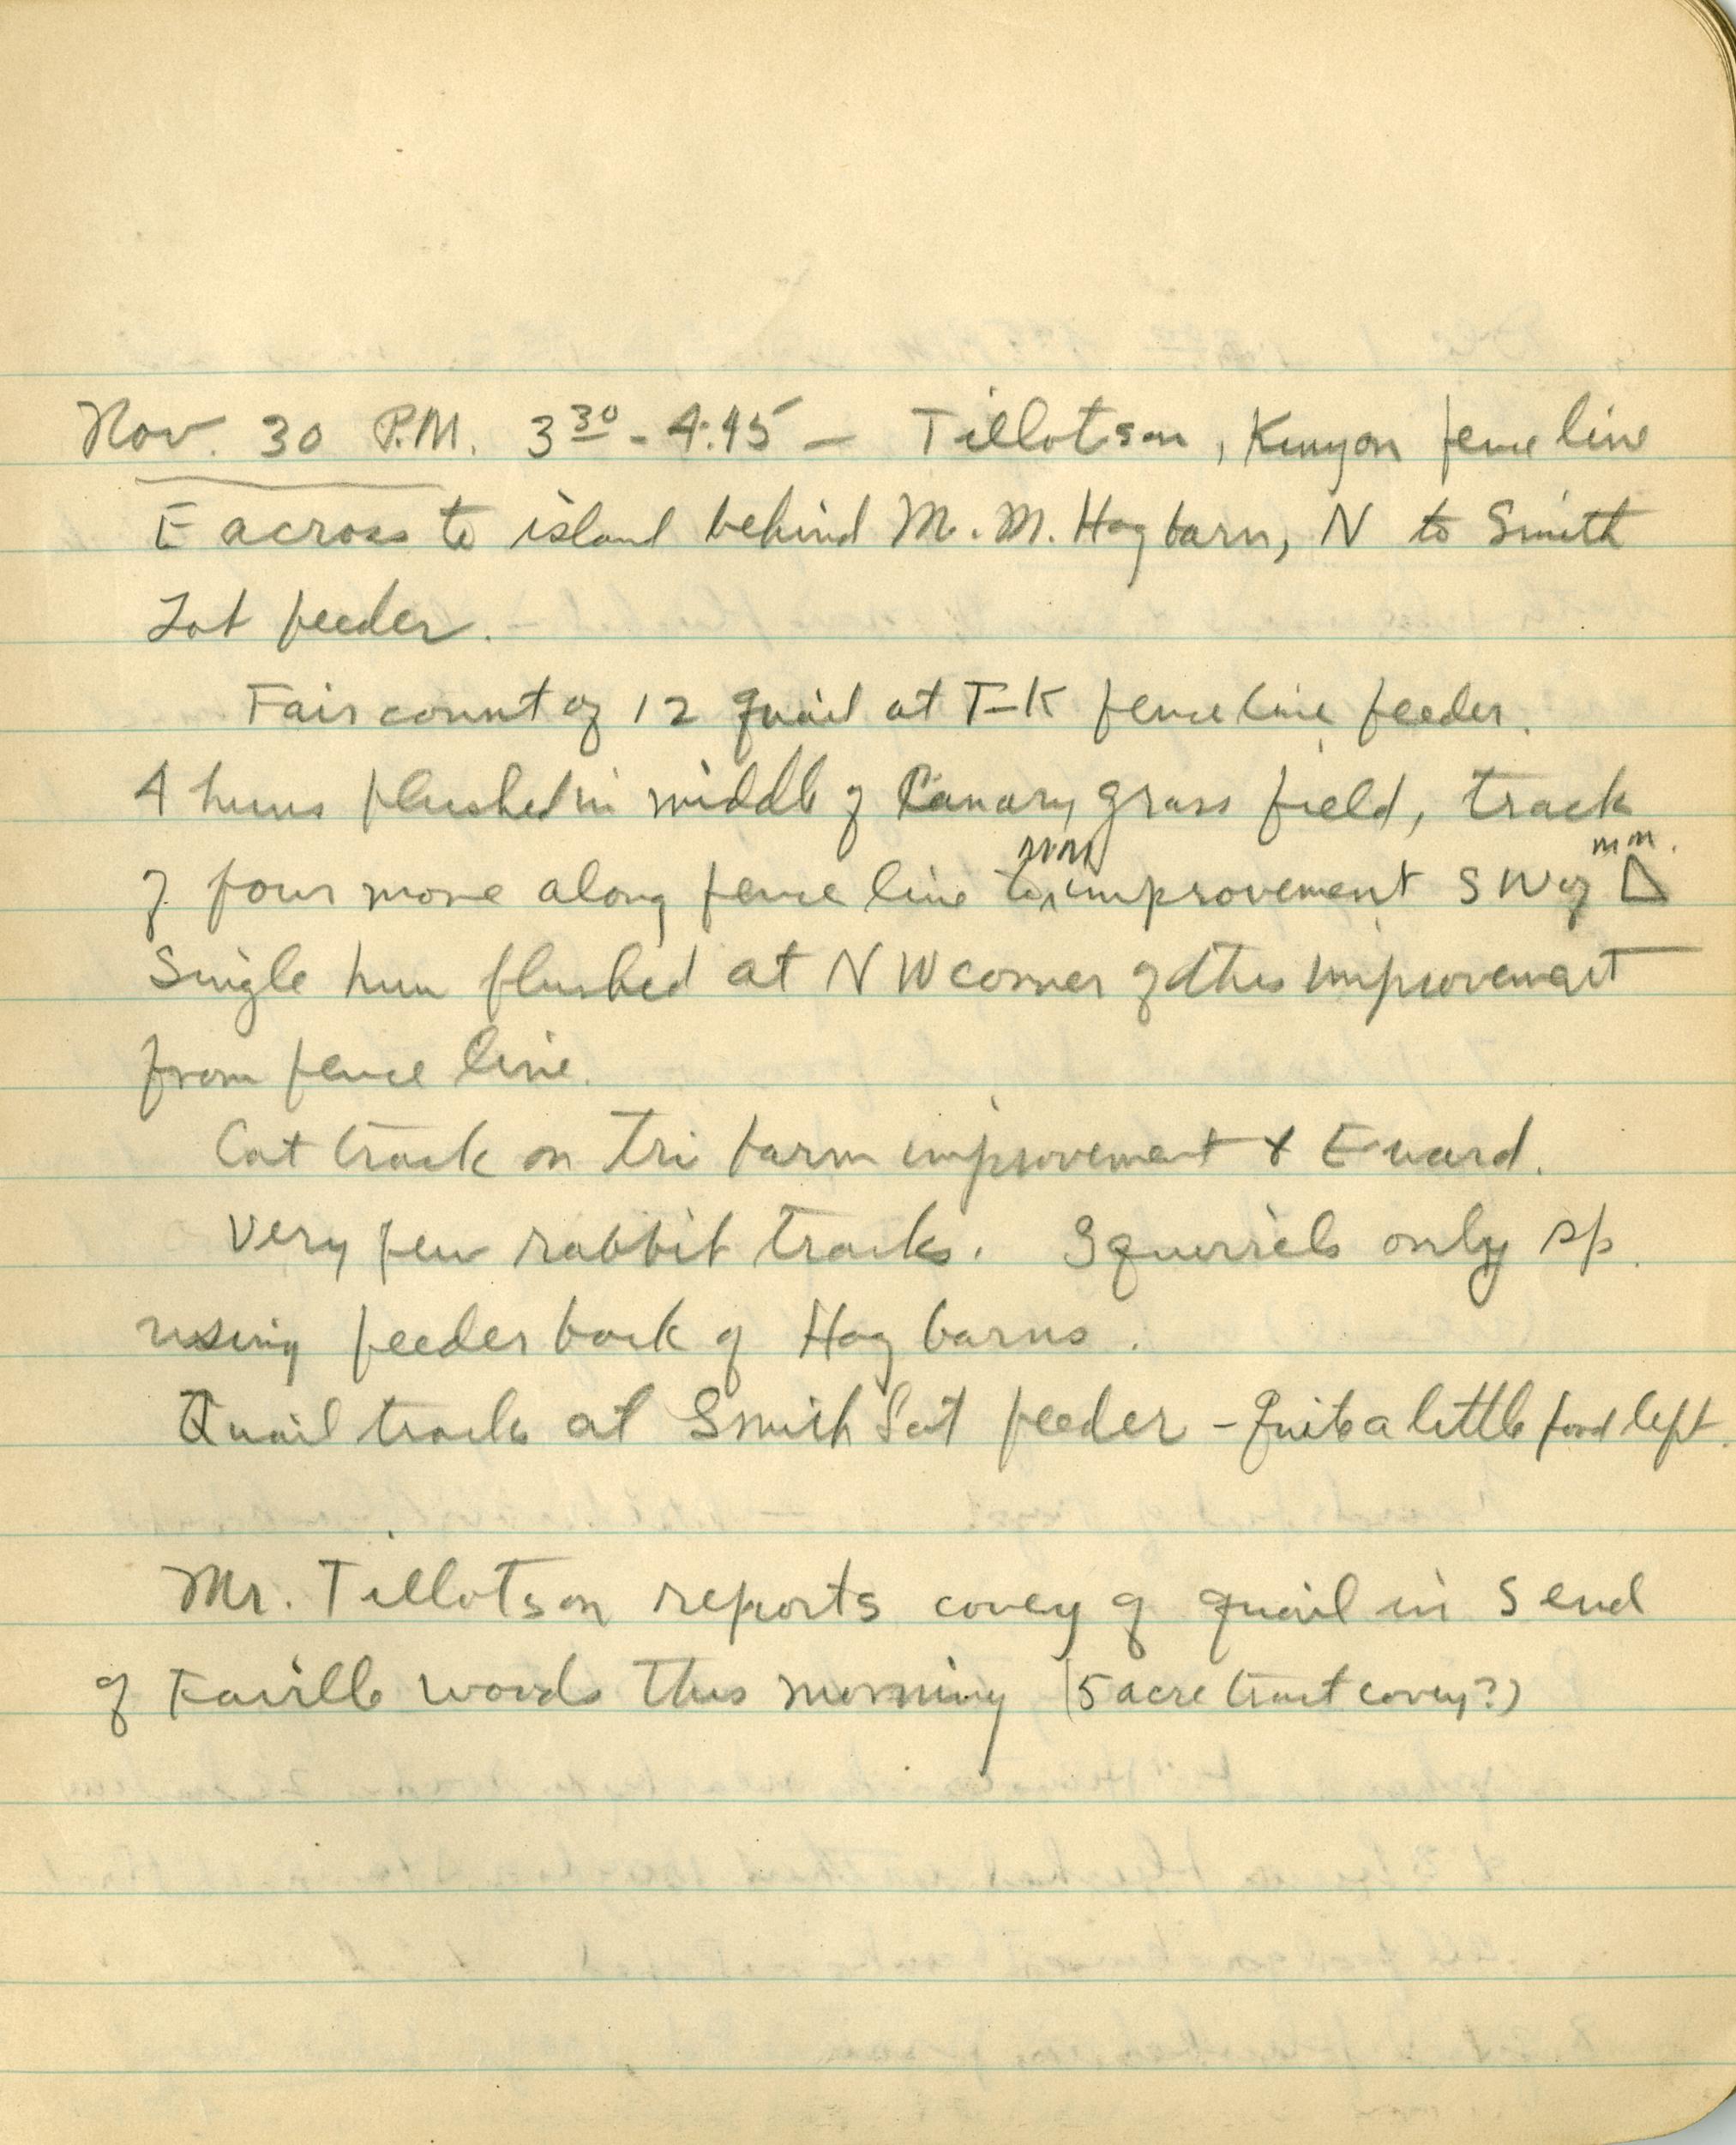 Nov. 30 P.M. 3 30 - 4:45 - Tillotson, Kenyon fence line
E across to island behind M.M. Hog barn, N to Smith
Lot feeder.
Fair count of 12 quail at T-K fence line feeder.
4 huns flushed in middle of Canary grass field, track
of four more along fence line to MM improvement SW of MM. Δ
Single hun flushed at NW corner of this improvement
from fence line.
Cat track on Tri barm improvement & Eward.
Very few rabbit tracks. Squirrels only sp.
using feeder back of Hog barns.
Quail tracks at Smith Lot feeder - Quite a little food left.
Mr. Tillotson reports covey of quail in S end
of Faville woods this morning (5 acre tract covey?)